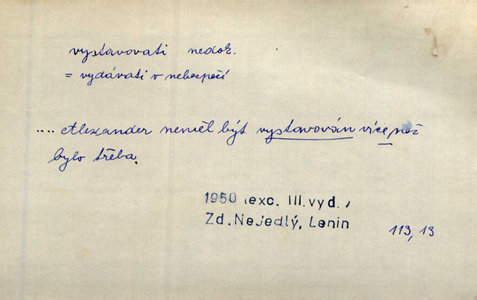 vystavovati nedok.
= vydávati v nebezpečí
.... Alexander neměl být vystavován více, než
bylo třeba.
1950 (exc. III. vyd.)
Zd. Nejedlý, Lenin
113, 13